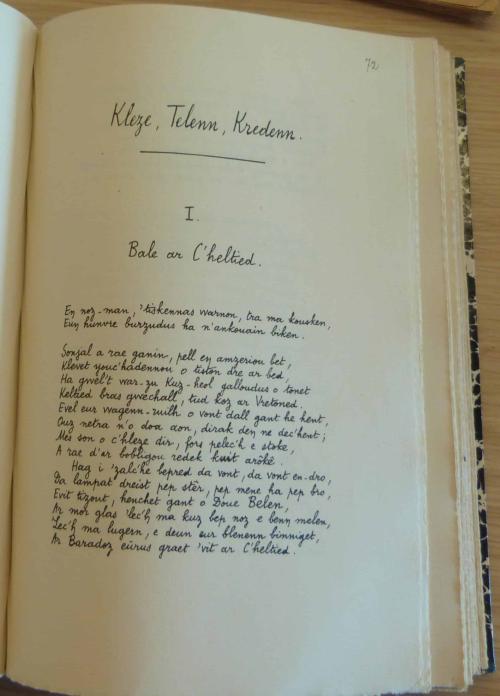 72
Kleze, Telenn, Kredenn.
I.
Bale ar C'heltied.
Eŋ noz-man, 'tiskennas warnon, tra ma kousken,
Euŋ huñvre burzudus ha n'ankouain biken.
Soŋjal a rae ganin, pell eŋ amzeriou bet,
Klevet youc'hadennou o tistoŋ dre ar bed,
Ha gwel't war-zu Kuz-heol galloudus o toñet
Keltied bras gwechall, tud koz ar Vretoned.
Evel eur wagenn-ruilh o vont dall gant he hent,
Ouz netra n'o doa aon, dirak deŋ ne dec'hent;
Mes soŋ o c'hleze dir, fors pelec'h e stoke,
A rae d'ar bobligou redek kuit arôkê.
Hag i 'zalc'he bepred da vont, da vont en-dro,
Da lampat dreist pep stêr, pep mene ha pep bro,
Evit tizout, henchet gant o Doue Belen,
Ar mor glas 'lec'h ma kuz bep noz e benn melen,
'Lec'h ma lugern, e deun eur blenenn binniget,
Ar Baradoz eürus graet 'vit ar C'heltied.